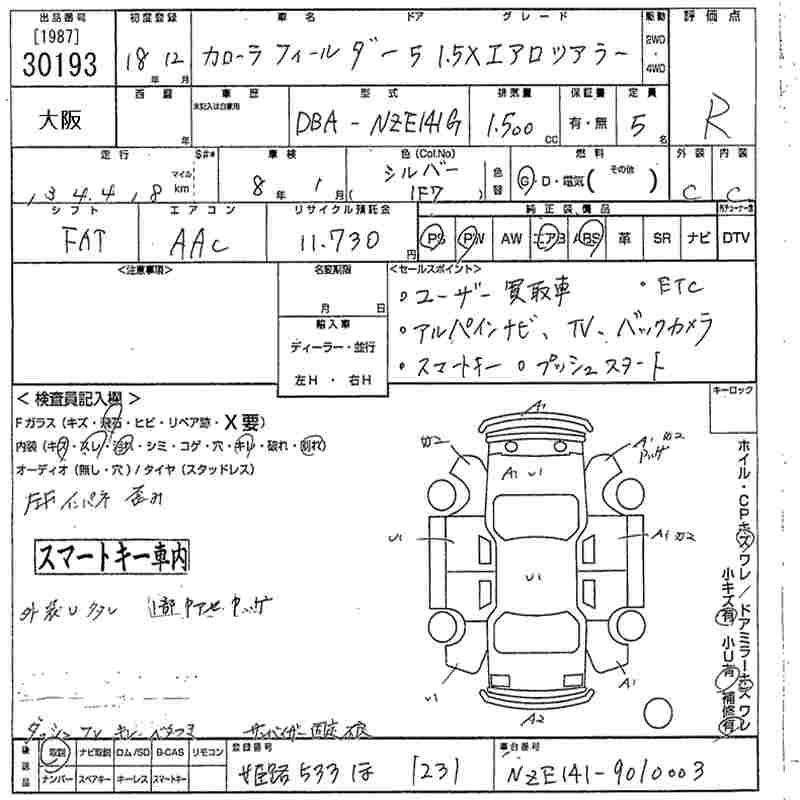 出品番号 初度登録 車名 ドア グレード 駆動 評価点
[1987] 30193 18年 12月 カローラ フィールダー 5 1.5X エアロツアラー 2WD・4WD R
大阪 西暦 年 車歴 未記入は自家用 型式 DBA-NZE141G 排気量 1.500 CC 保証書 有・無 定員 5名
走行 S#* 車検 色(Col.No) 燃料 外装 内装
134.4.8 マイル km 8年 1月 シルバー (1F7) 色替 G・D・電気( その他 ) C C
シフト エアコン リサイクル預託金 純正装備品
FAT AAC 11.730 円 PS PW AW エアB ABS 革 SR ナビ DTV
<注意事項> 名変期限 <セールスポイント>
月 日
・ユーザー買取車 ・ETC
輸入車
・アルパインナビ、TV、バックカメラ
ディーラー・並行
・スマートキー ・プッシュスタート
左H・右H
<検査員記入欄> キーロック
Fガラス(キズ・飛石・ヒビ・リペア跡・X要)
内装(キズ・スレ・汚ス・シミ・コゲ・穴・キレ・破れ・割れ)
オーディオ(無し・穴)/タイヤ(スタッドレス)
スマートキー車内
A1
A1 U1
U1
U1
U1
A1
A2
ホイル・CPキズ/ワレ/ドアミラーキズ ワレ
小キズ有 小U有 補修有
後日品 取説 ナビ取説 ロム/SD B-CAS リモコン 登録番号 車台番号
ナンバー スペアキー キーレス スマートキー 姫路 533 ほ 1231 NZE141-9010003